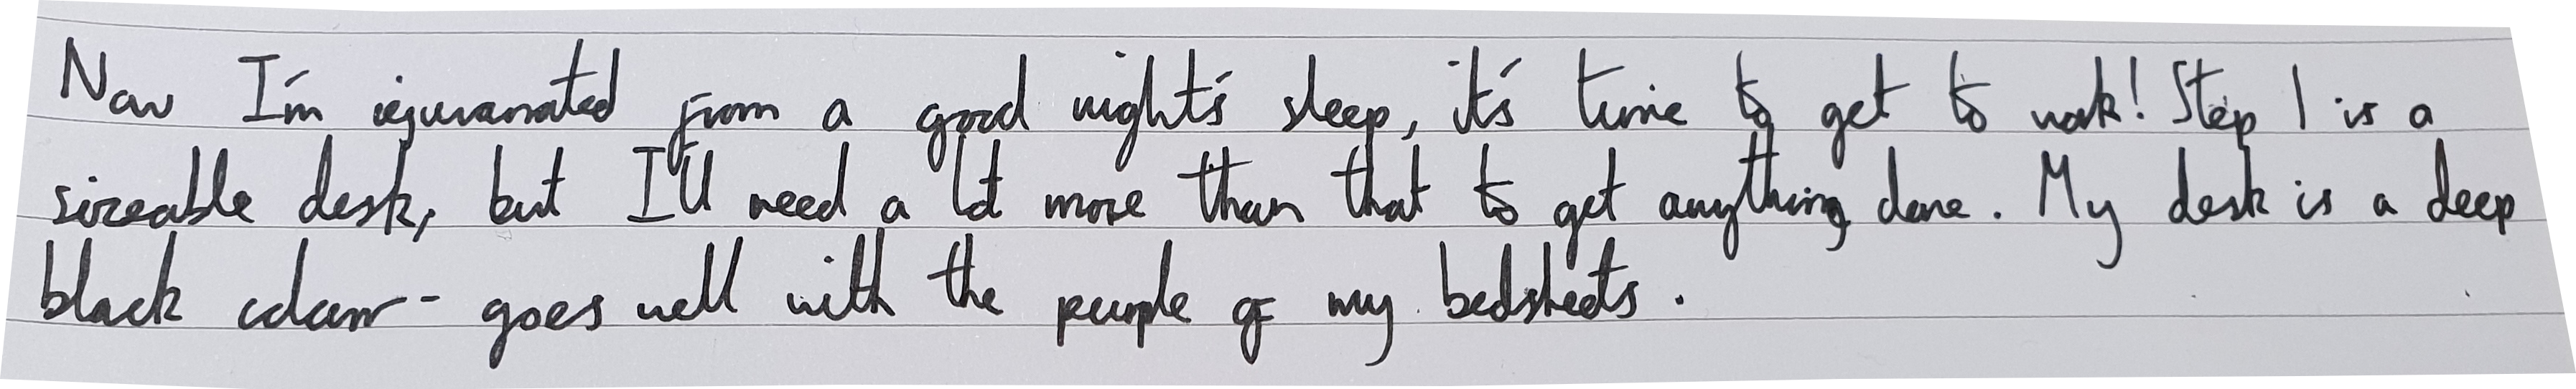 Now I'm rejuvanated from a good night's sleep, it's time to get to work! Step 1 is a
sizeable desk, but I'll need a lot more than that to get anything done. My desk is a deep
black colour - goes well with the purple of my bedsheets.